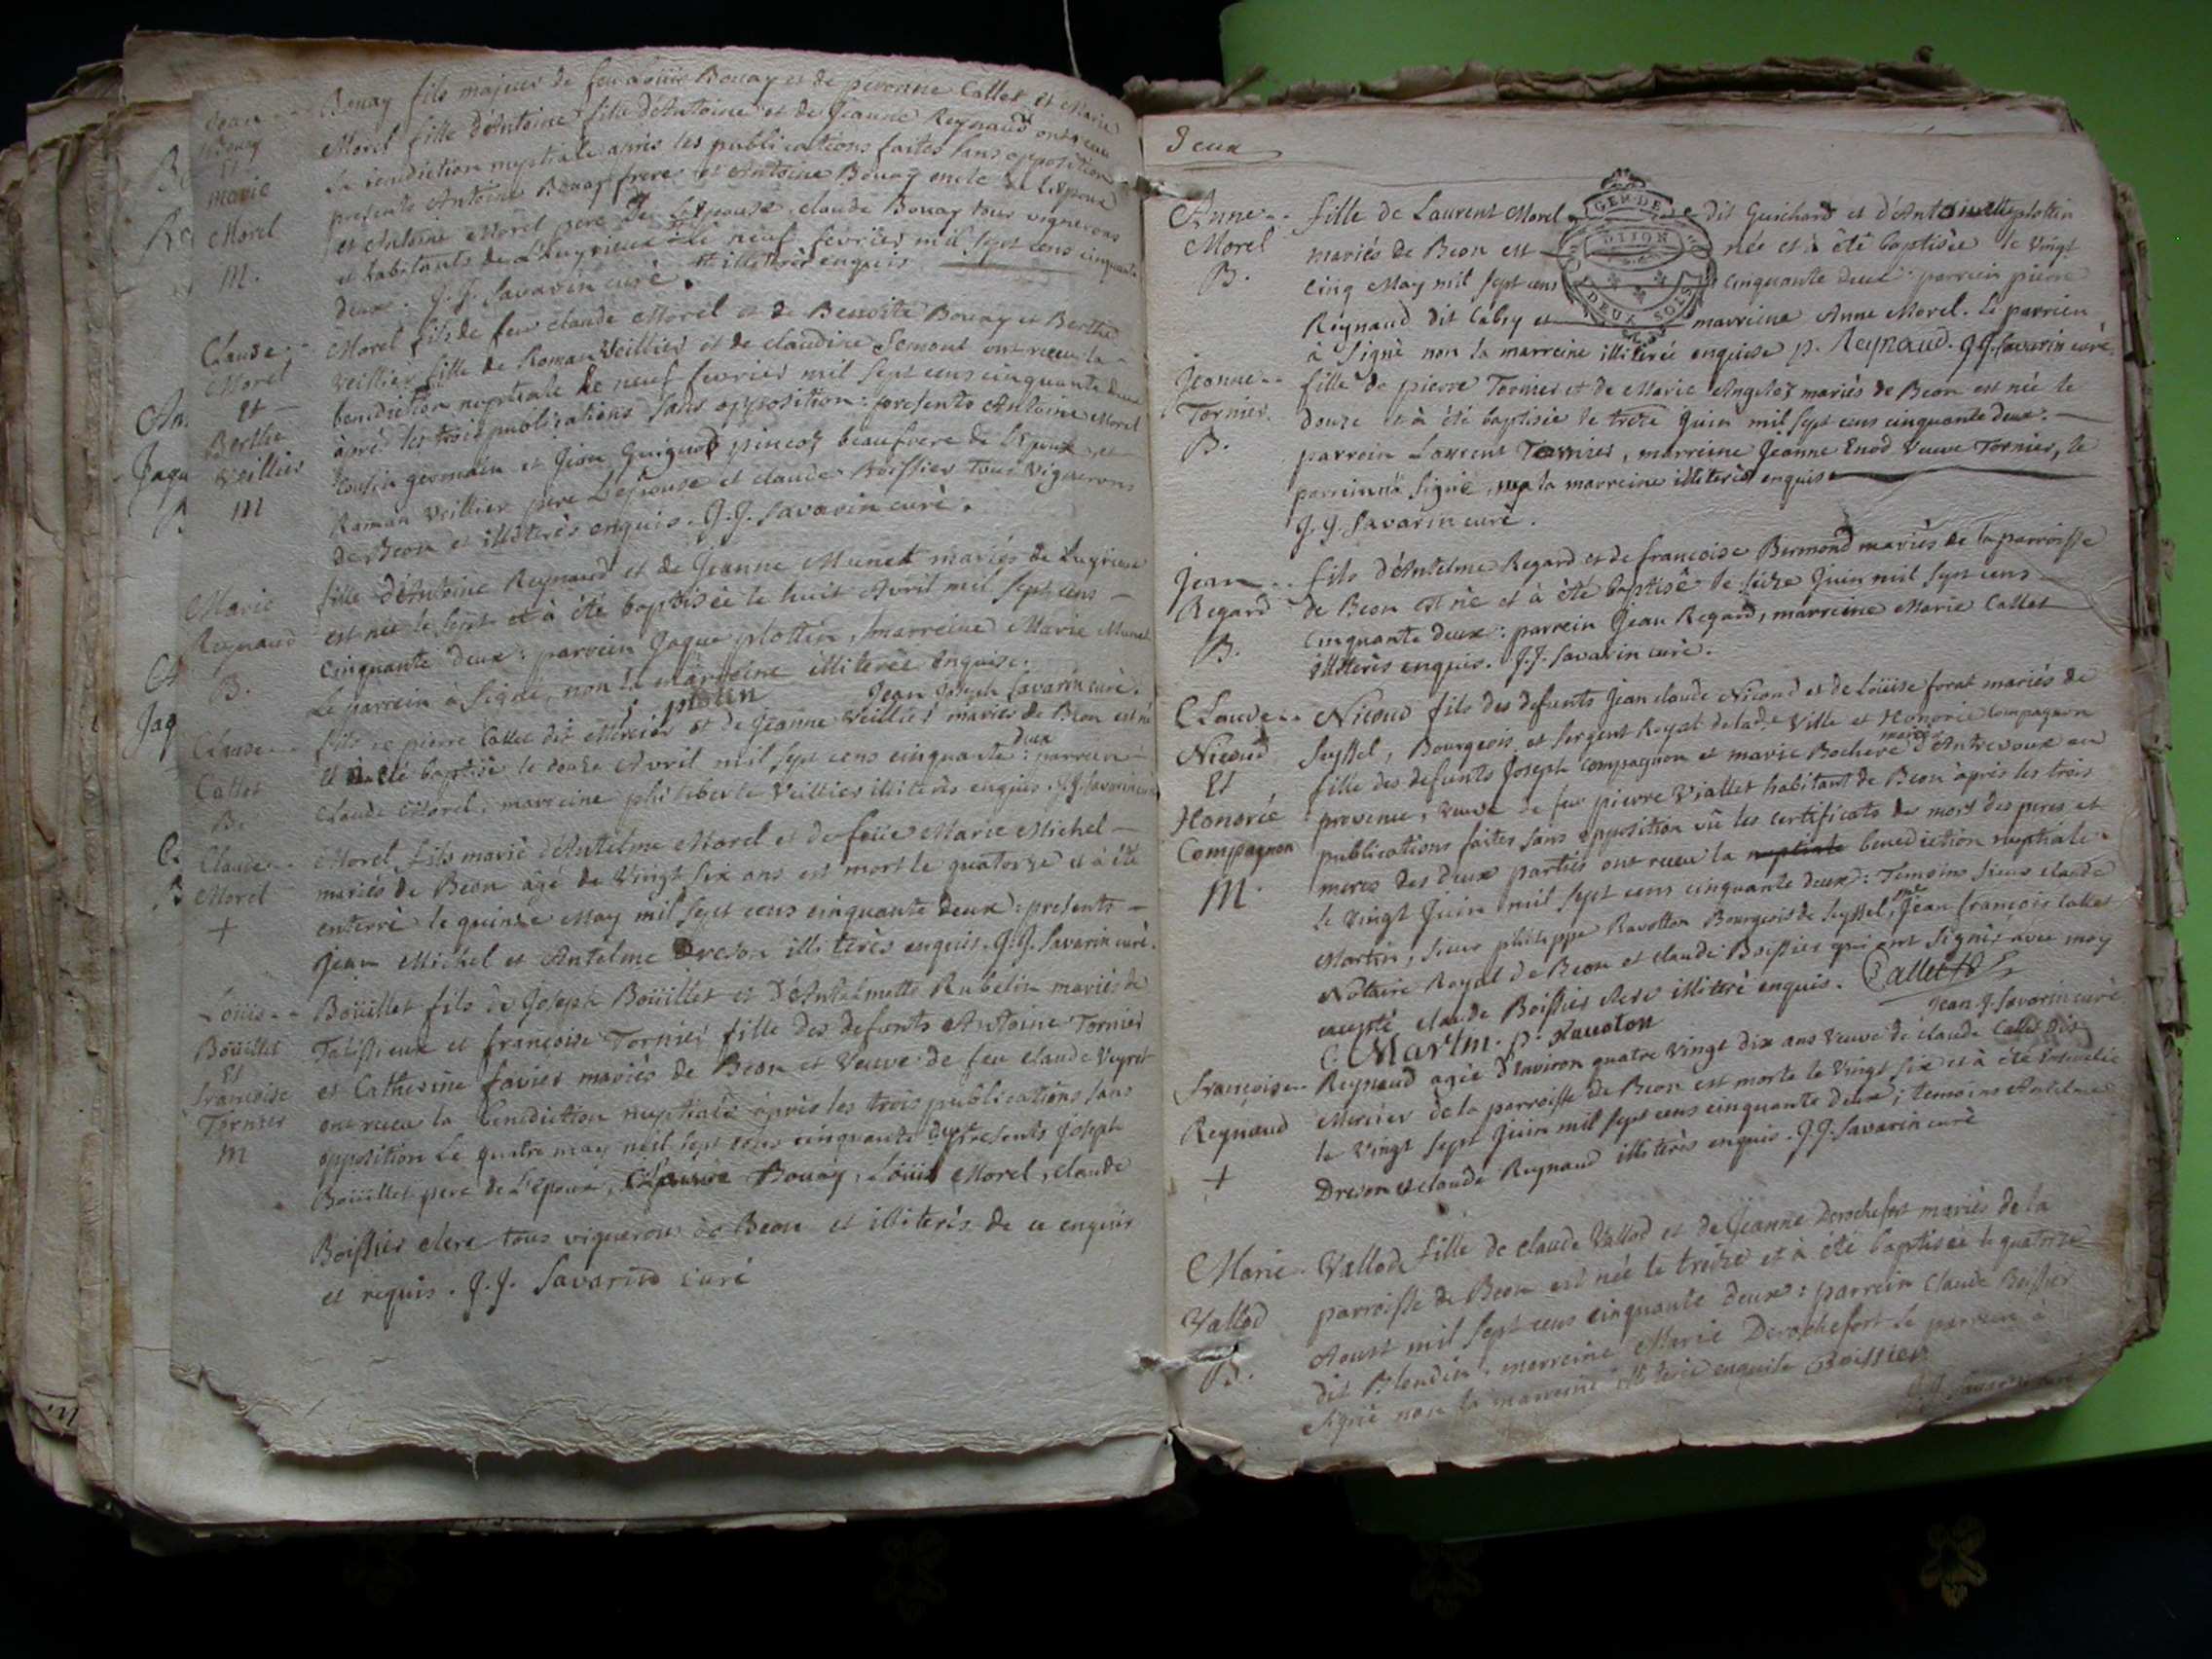 Jean
Bouay
Et
Marie
Morel
M.
Bouay fils majeur de feu Loüis Bouay et de peronne Callet et Marie
Morel fille d'Antoine fille d'Antoine et de Jeanne Reynaud ont receu
la benediction nuptiale après les publications faites sans opposition
presents Antoine Bouay frere et Antoine Bouay oncle de L'epoux
et Antoine Morel pere de L'epouse, claude Bouay tous vignerons
et habitants de Luyrieux Le neuf février mil sept cens cinquante
deux. J. J. Savarin curé. et illiterés enquis
Claude
Morel
Et
Berthe
Veillier
M
Morel fils de feu claude Morel et de Benoite Bouay et Berthe
Veillier fille de Roman Veillier et de claudine Semont ont receu la
benediction nuptiale le neuf fevrier mil sept cens cinquante deux
après les trois publications sans opposition: presents Antoine Morel
cousin germain et Jean Guigued pincoz beaufrere de L'epoux et
Roman Veillier pere L'epouse et claude Boissier tous vignerons
de Beon et illiterés enquis. J. J. Savarin curé.
Marie
Reynaud
B.
fille d'Antoine Reynaud et de Jeanne Munet mariés de Luyrieux
est née le sept et à été baptisée le huit Avril mil sept cens
cinquante deux: parrein Jaque plottin, marreine Marie Munet
Le parrein à signé, non la marreine illiterée enquise.
J plotin Jean Joseph Savarin curé.
Claude
Callet
B.
fils de pierre Callet dit Mercier et de Jeanne Veillier mariés de Beon est né
et à été baptisé le douze Avril mil sept cens cinquante deux: parrein
claude Morel, marreine philiberte Veillier illiterés enquis. J. J. Savarin curé
Claude
Morel
+
Morel, fils marié d'Antelme Morel et de feüe Marie Michel
mariés de Beon âgé de Vingt six ans est mort le quatorze et à été
enterré le quinze May mil sept cens cinquante deux: presents
Jean Michel et Antelme Dreson illiterés enquis. J. J. Savarin curé.
Loüis
Boüillet
Et
françoise
Tornier
M
Boüillet fils de Joseph Boüillet et d'Antelmette Rubelin mariés de
Talissieux et françoise Tornier fille des defunts Antoine Tornier
et Catherine favier mariés de Beon et Veuve de feu claude Veyret
ont receu la benediction nuptiale après les trois publications sans
opposition Le quatre may mil sept cens cinquante deux presents Joseph
Boüillet pere de L'epoux, Bouay, Loüis Morel, claude
Boissier clerc tous vignerons de Beon et illiterés de ce enquis
et requis. J. J. Savarin curé
Deux
GEN DE
DIJON
DEUX SOLS
Anne
Morel
B.
fille de Laurent Morel dit Guichard et d'Antoinette plottin
mariés de Beon est née et à été baptisée le Vingt
cinq May mil sept cens cinquante deux: parrein pierre
Reynaud dit Cabry et marreine Anne Morel. Le parrein
à signé non la marreine illiterée enquise p. Reynaud. J. J. Savarin curé.
Jeanne
Tornier.
B.
fille de pierre Tornier et de Marie Angeloz mariés de Beon est née le
douze et à été baptisée le treze Juin mil sept cens cinquante deux.
parrein Laurent Tornier, marreine Jeanne Enod Veuve Tornier, le
parrein à signé, la marreine illiterée enquise
J. J. Savarin curé.
Jean
Regard
B.
fils d'Antelme Regard et de francoise Bermond mariés de la parroisse
de Beon est né et à été baptisé le seize Juin mil sept cens
cinquante deux: parrein Jean Regard, marreine Marie Callet
illiterés enquis. J. J. Savarin curé.
Claude
Nicoud
Et
Honorée
Compagnon
M.
Nicoud fils des defunts Jean claude Nicoud et de Loüise forat mariés de
Seyssel, Bourgeois et sergent Royal de lad.e Ville et Honorée Compagnon
fille des defunts Joseph Compagnon et marie Bochere mariés d'Antrevoux en
provence, Veuve de feu pierre Viallet habitant de Beon après les trois
publications faites sans opposition vû les certificats de mort des peres et
meres des deux parties ont receu la nuptiale benediction nuptiale
le Vingt Juin mil sept cens cinquante deux: Temoins sieur claude
Martin, sieur philippe Ravotton Bourgeois de Seyssel, me Jean françois Callet
Notaire Royal de Beon et claude Boissier qui ont signés avec moy
excepté claude Boissier clerc illiteré enquis. Callet
C. Martin. p. Rauoton Jean J. Savarin curé
françoise
Reynaud
+
Reynaud agée d'environ quatre Vingt dix ans Veuve de claude Callet dit
Mercier de la parroisse de Beon est morte le Vingt six et à été ensevelie
le Vingt sept Juin mil sept cens cinquante deux; temoins Antelme
Dreson et claude Reynaud illiterés enquis. J. J. Savarin curé
Marie
Vallod
B.
Vallod fille de claude Vallod et de Jeanne Derochefort mariés de la
parroisse de Beon est née le treize et à été baptisée le quatorze
Aoust mil sept cens cinquante deux: parrein Claude Boissier
dit Blondin, marreine Marie Derochefort Le parrein à
signé non la marreine illiterée enquise Boissier
J. J. Savarin curé